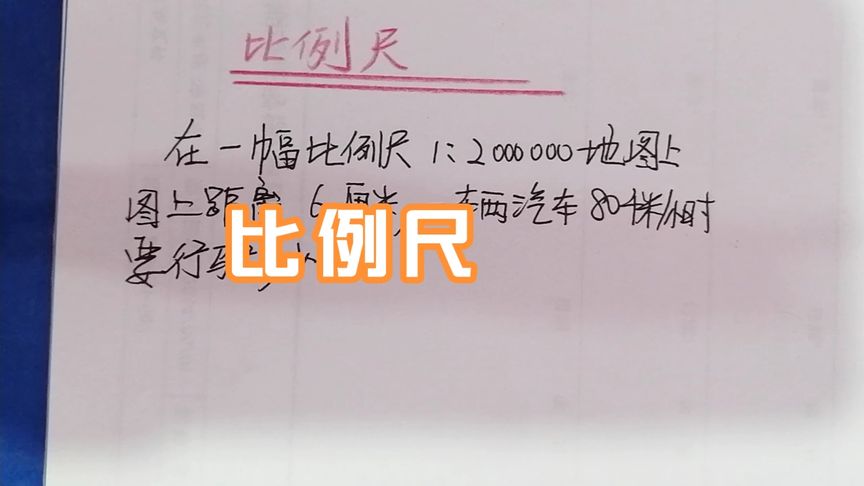 比例尺
在一幅比例尺1:2000000地图上
图上距离6厘米,辆汽车80千米/小时
要行
比例尺